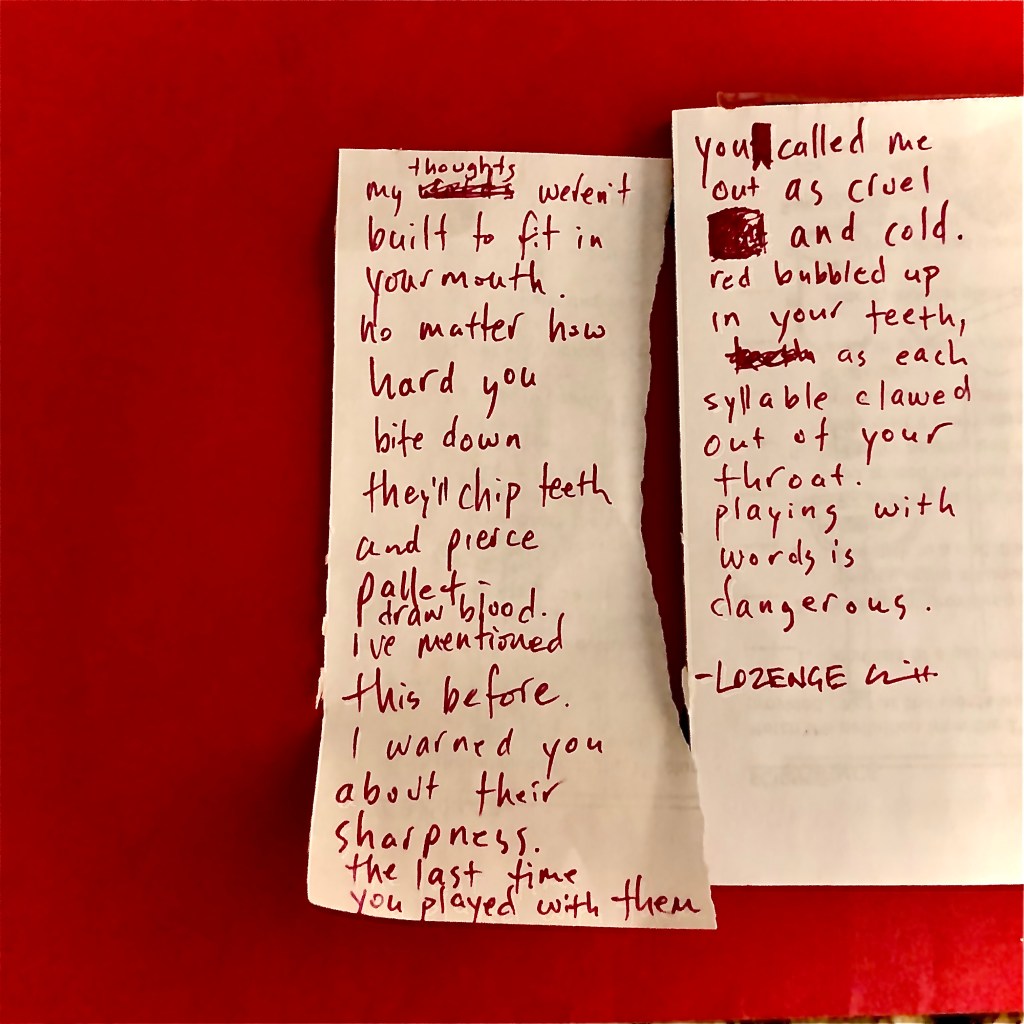 my thoughts weren't
built to fit in
your mouth.
no matter how
hard you
bite down
they'll chip teeth
and pierce
pallet.
draw blood.
I've mentioned
this before.
I warned you
about their
sharpness.
the last time
you played with them
you called me
out as cruel
and cold.
red bubbled up
in your teeth,
as each
syllable clawed
out of your
throat.
playing with
words is
dangerous.
-LOZENGE